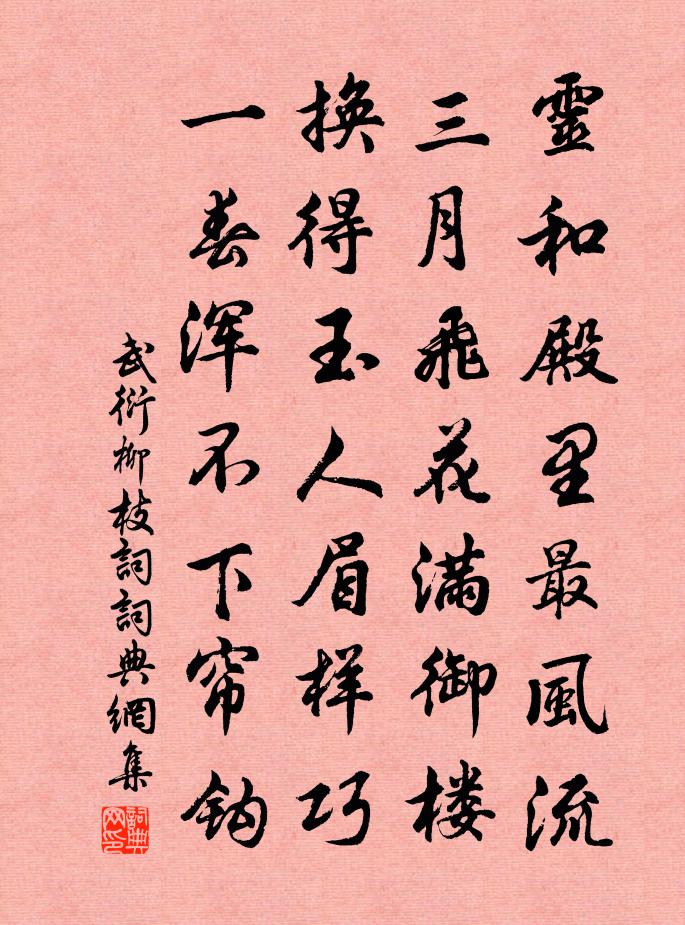 靈和殿里最風流
三月飛花满御楼
換得玉人眉样巧
一春浑不下帘钩
武衍柳枝詞詞典網集
詞典网印